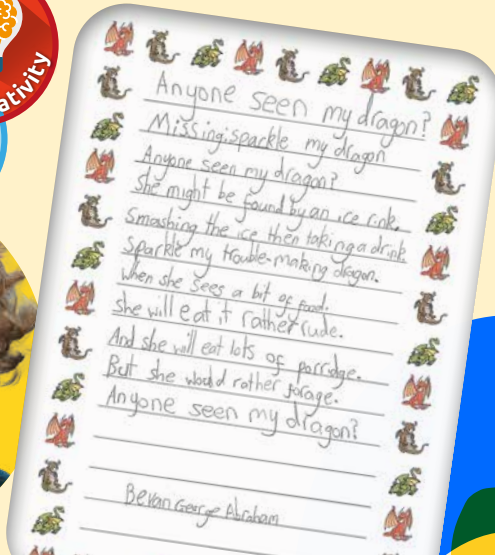 ativity
Anyone seen my dragon?
Missing:sparkle my dragon
Anyone seen my dragon?
She might be found by an ice rink,
Smashing the ice then taking a drink
Sparkle my trouble-making dragon.
When she sees a bit of food.
She will eat it rather rude.
And she will eat lots of porridge.
But she would rather forage.
Anyone seen my dragon?
Bevan George Abraham